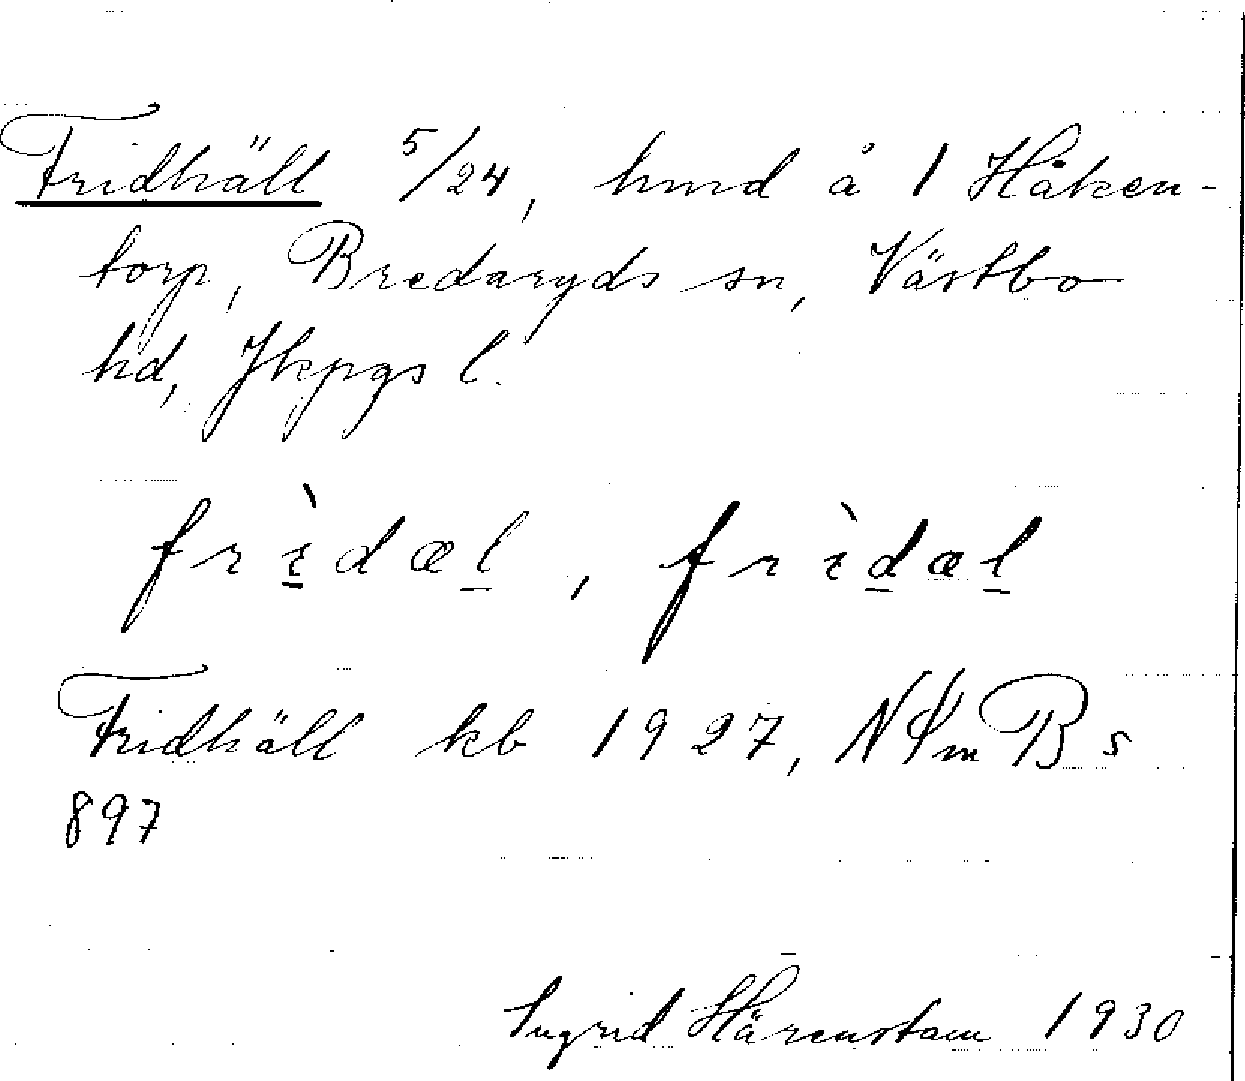 Fridhäll 5/24, hmd å 1 Håken-
torp, Bredaryds sn, Västbo
hd, Jkpgs l.
frìdæl, frìdæl
Fridhäll kb 1927, NSmB s
897
Ingrid Härenstam 1930